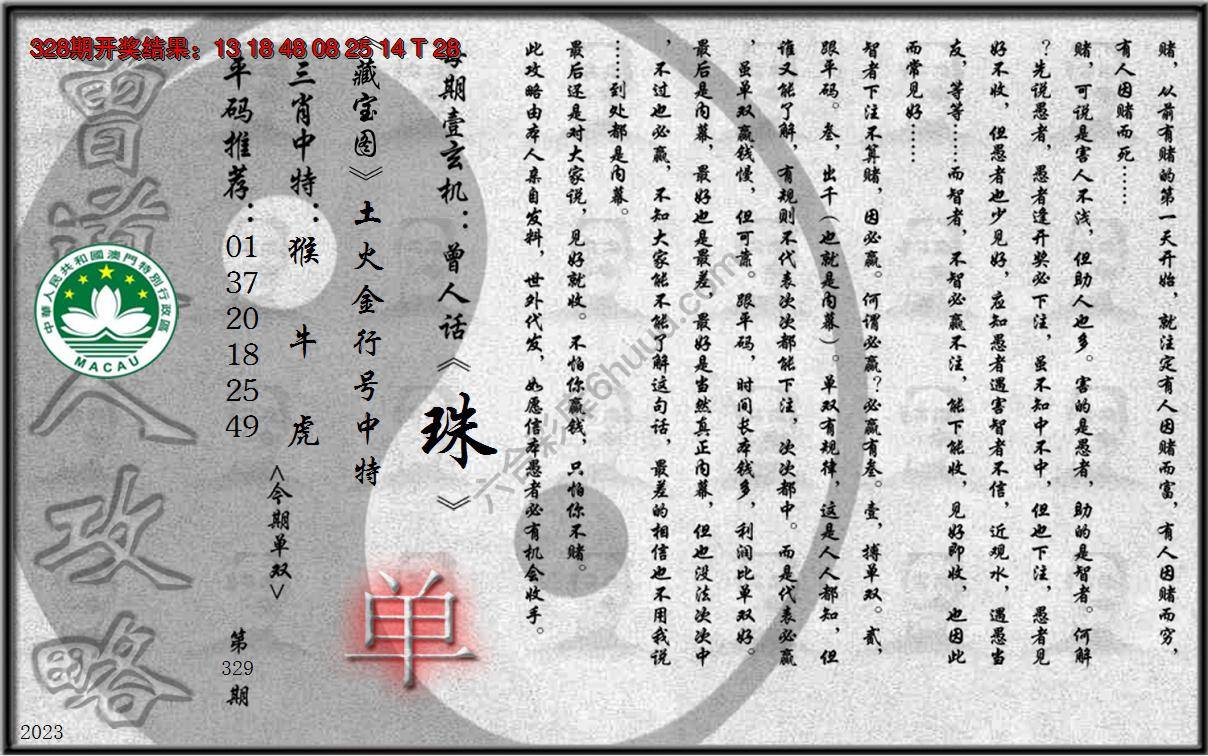 328期开奖结果：13 18 48 08 25 14 T 28
赌，从前有赌的第一天开始，就注定有人因赌而富，有人因赌而穷，
有人因赌而死……
赌，可说是害人不浅，但助人也多。害的是愚者，助的是智者。何解
？先说愚者，愚者逢开奖必下注，虽不知中不中，但也下注，愚者见
好不收，但愚者也少见好，应知愚者遇害智者不信，近观水，遇愚当
友，等等……而智者，不智必赢不注，能下能收，见好即收，也因此
而常见好……
智者下注不算赌，因必赢。何谓必赢？必赢有叁。壹，搏单双。贰，
跟平码。叁，出千（也就是内幕）。单双有规律，这是人人都知，但
谁又能了解，有规则不代表次次都能下注，次次都中。而是代表必赢
，虽单双赢钱慢，但可靠。跟平码，时间长本钱多，利润比单双好。
最后是内幕，最好也是最差，最好是当然真正内幕，但也没法次次中
，不过也必赢，不知大家能不能了解这句话，最差的相信也不用我说
……到处都是内幕。
最后还是对大家说，见好就收。不怕你赢钱，只怕你不赌。
此攻略由本人亲自发料，世外代发，如愿信本愚者必有机会收手。
每期壹玄机：曾人话《珠》
《藏宝图》土火金行号中特
单
三肖中特：猴 牛 虎
<今期单双>
平码推荐：01 37 20 18 25 49
第329期
曾道人攻略
中華人民共和國澳門特別行政區
MACAU
2023
六合彩库6huuu.com